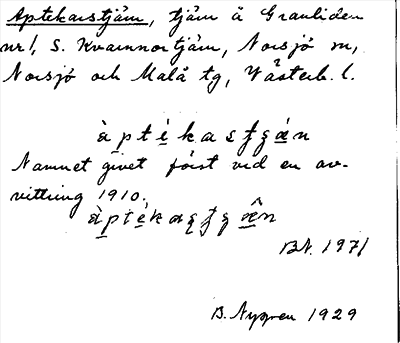 Aptekarstjärn, tjärn å Granliden
nr 1, S. Kvarnnortjärn, Norsjö sn,
Norsjö och Malå tg, Västerb. l.
àptèkas
Namnet givet först vid en av-
vittring 1910.
BN. 1971
B. Nygren 1929